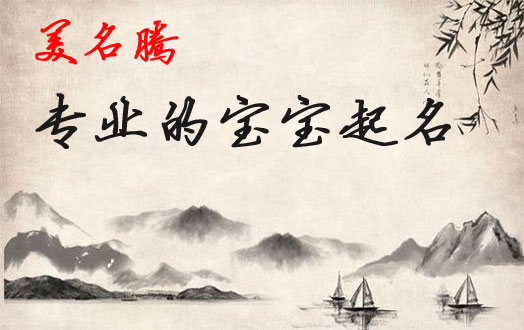 美名腾
专业的宝宝起名